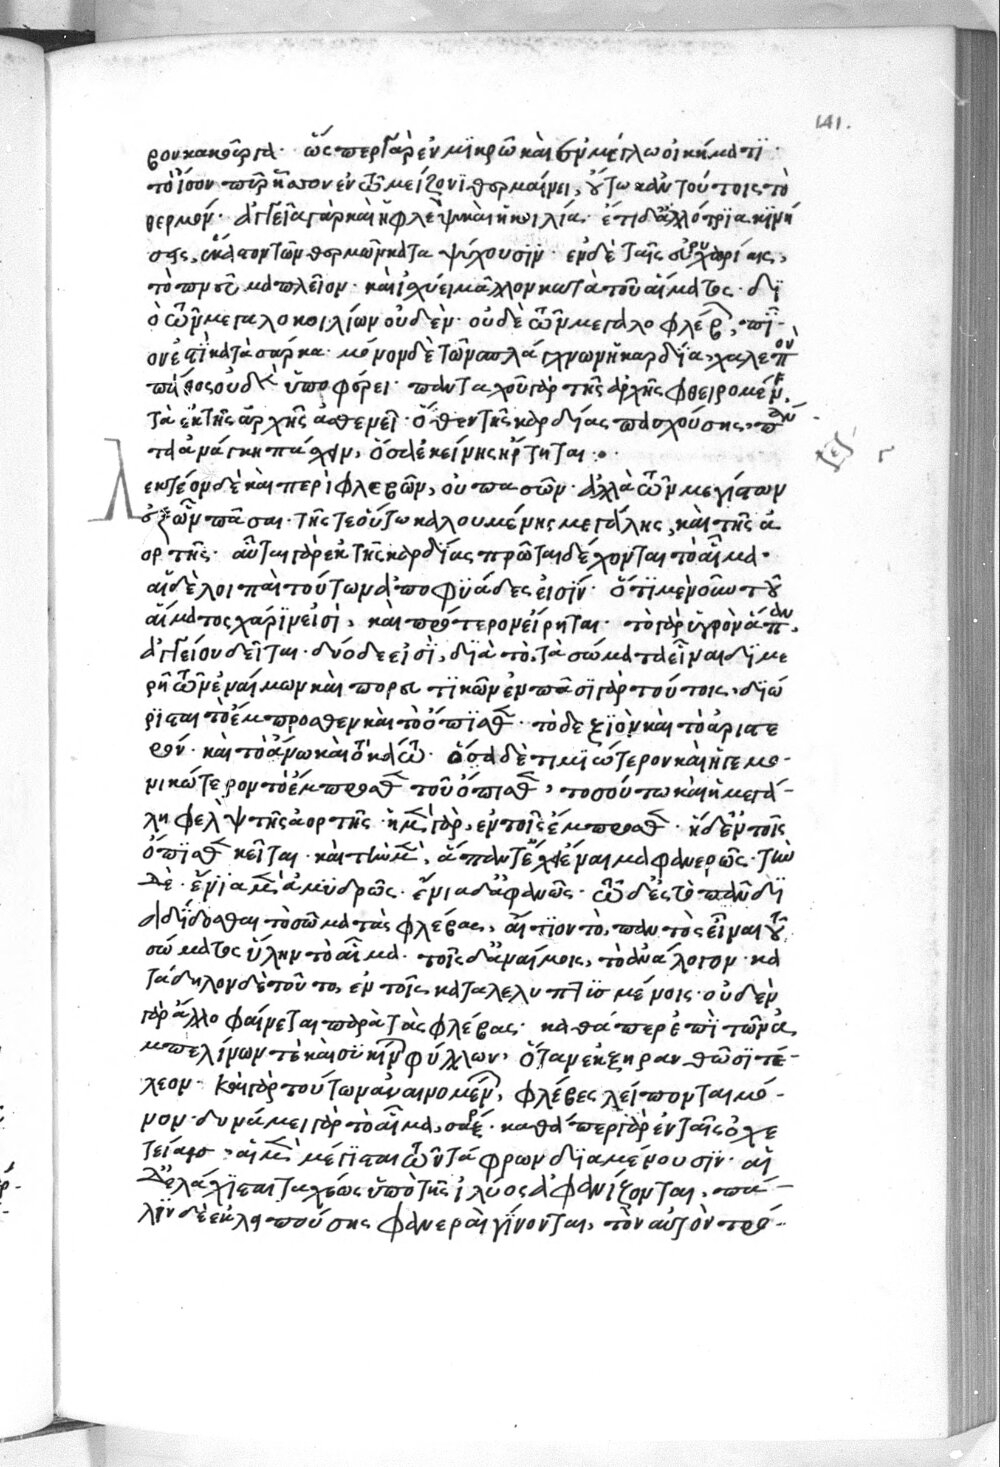 141.
βρον κακουργία· ὥσπερ γὰρ ἐν μϊκρῶ καὶ ἐν μεγάλω οἰκήματϊ·
τὸ ἴσον πῦρ ἧττον ἐν τῶ μείζονϊ θερμαίνει, οὕτω κἀν τούτοις τὸ
θερμόν· ἀγγεῖα γὰρ καὶ ἡ φλὲψ καὶ ἡ κοιλία· ἔτι δ' ἀλλότρϊαι κϊνή
σεις, ἕκαστον τῶν θερμῶν καταψύχουσϊν· ἐν δὲ ταῖς εὐρυχωρίαις,
τὸ πνεῦμα πλεῖον· καὶ ἰσχύει μᾶλλον κατὰ τοῦ αἵματος· δϊ
ὸ τῶν μεγαλοκοιλίων οὐδὲν· οὐδὲ τῶν μεγαλοφλέβων, πῖ
ον ἐστϊ κατὰ σάρκα· μόνον δὲ τῶν σπλάγχνων ἡ καρδία, χαλεπὸν
πάθος οὐδὲν ὑποφέρει· πανταχοῦ γὰρ τῆς ἀρχῆς φθειρομένης,
τὰ ἐκ τῆς ἀρχῆς ἀσθενεῖ· ὅθεν τῆς καρδίας πασχούσης, πάν
τα ἀνάγκη πάσχειν, ὅσα ἐκείνης ἤρτηται :·
Λεκτέον δὲ καὶ περὶ φλεβῶν, οὐ πασῶν· ἀλλὰ τῶν μεγίστων
ἐξ ὧν πᾶσαι· τῆς τε οὕτω καλουμένης μεγάλης, καὶ τῆς ἀ
ορτῆς· αὗται γὰρ ἐκ τῆς καρδίας πρῶται δέχονται τὸ αἷμα·
αἱ δὲ λοιπαὶ τούτων ἀποφϋάδες εἰσϊν· ὅτϊ μὲν οὖν τοῦ
αἵματος χάρϊν εἰσὶ, καὶ πρότερον εἴρηται· τὸ γὰρ ὑγρὸν ἅπαν,
ἀγγείου δεῖται· δύο δε εἰσϊ, δϊὰ τὸ, τὰ σώματα εἶναι δϊμε
ρῆ τῶν ἐναίμων καὶ πορευτϊκῶν· ἐν πᾶσϊ γὰρ τούτοις, διώ
ρϊσται τὸ ἔμπροσθεν καὶ τὸ ὄπϊσθεν· τὸ δεξϊὸν καὶ τὸ ἀριστε
ρὸν· καὶ τὸ ἄνω καὶ τὸ κάτω· ὅσα δὲ τιμϊώτερον καὶ ἡγεμο
νικώτερον τὸ ἔμπροσθεν τοῦ ὄπισθεν, τοσούτω καὶ ἡ μεγά
λη φλὲψ τῆς ἀορτῆς· ἡ μὲν γὰρ, ἐν τοῖς ἔμπροσθεν· ἡ δ' ἐν τοῖς
ὄπϊσθεν κεῖται· καὶ τὴν μὲν, ἅπαντ' ἔχει ἔναιμα φανερῶς· τὴν
δὲ· ἔνϊα μὲν ἀμϋδρῶς· ἔνια δ' ἀφανῶς· τοῦ δ' εἰς τὸ πᾶν δϊ
αδίδοσθαι τὸ σῶμα τὰς φλέβας, αἴτϊον τὸ, παντὸς εἶναι τοῦ
σώματος ὕλην τὸ αἷμα· τοῖς δ' ἀναίμοις, τὸ ἀνάλογον· κα
τάδηλον δὲ τοῦτο, ἐν τοῖς καταλελυπτϊσμένοις· οὐδὲν
γὰρ ἄλλο φαίνεται παρὰ τὰς φλέβας· καθάπερ ἐπὶ τῶν ἀ
μπελίνων τὲ καὶ συκίνων φύλλων, ὅταν ἐκξηρανθῶσϊ τέ
λεον· καὶ γὰρ τούτων ἀναινομένων, φλέβες λείπονται μό
νον· δυνάμει γὰρ τὸ αἷμα, σάρξ· καθάπερ γὰρ ἐν ταῖς ὀχε
τείαις, αἱ μὲν μέγϊσται τῶν τάφρων διαμένουσϊν· αἱ
δ' ἐλάχισται ταχέως ὑπὸ τῆς ἰλύος ἀφανίζονται, πά
λϊν δὲ ἐκλιπούσης φανεραὶ γίνονται, τὸν αὐτὸν τρό